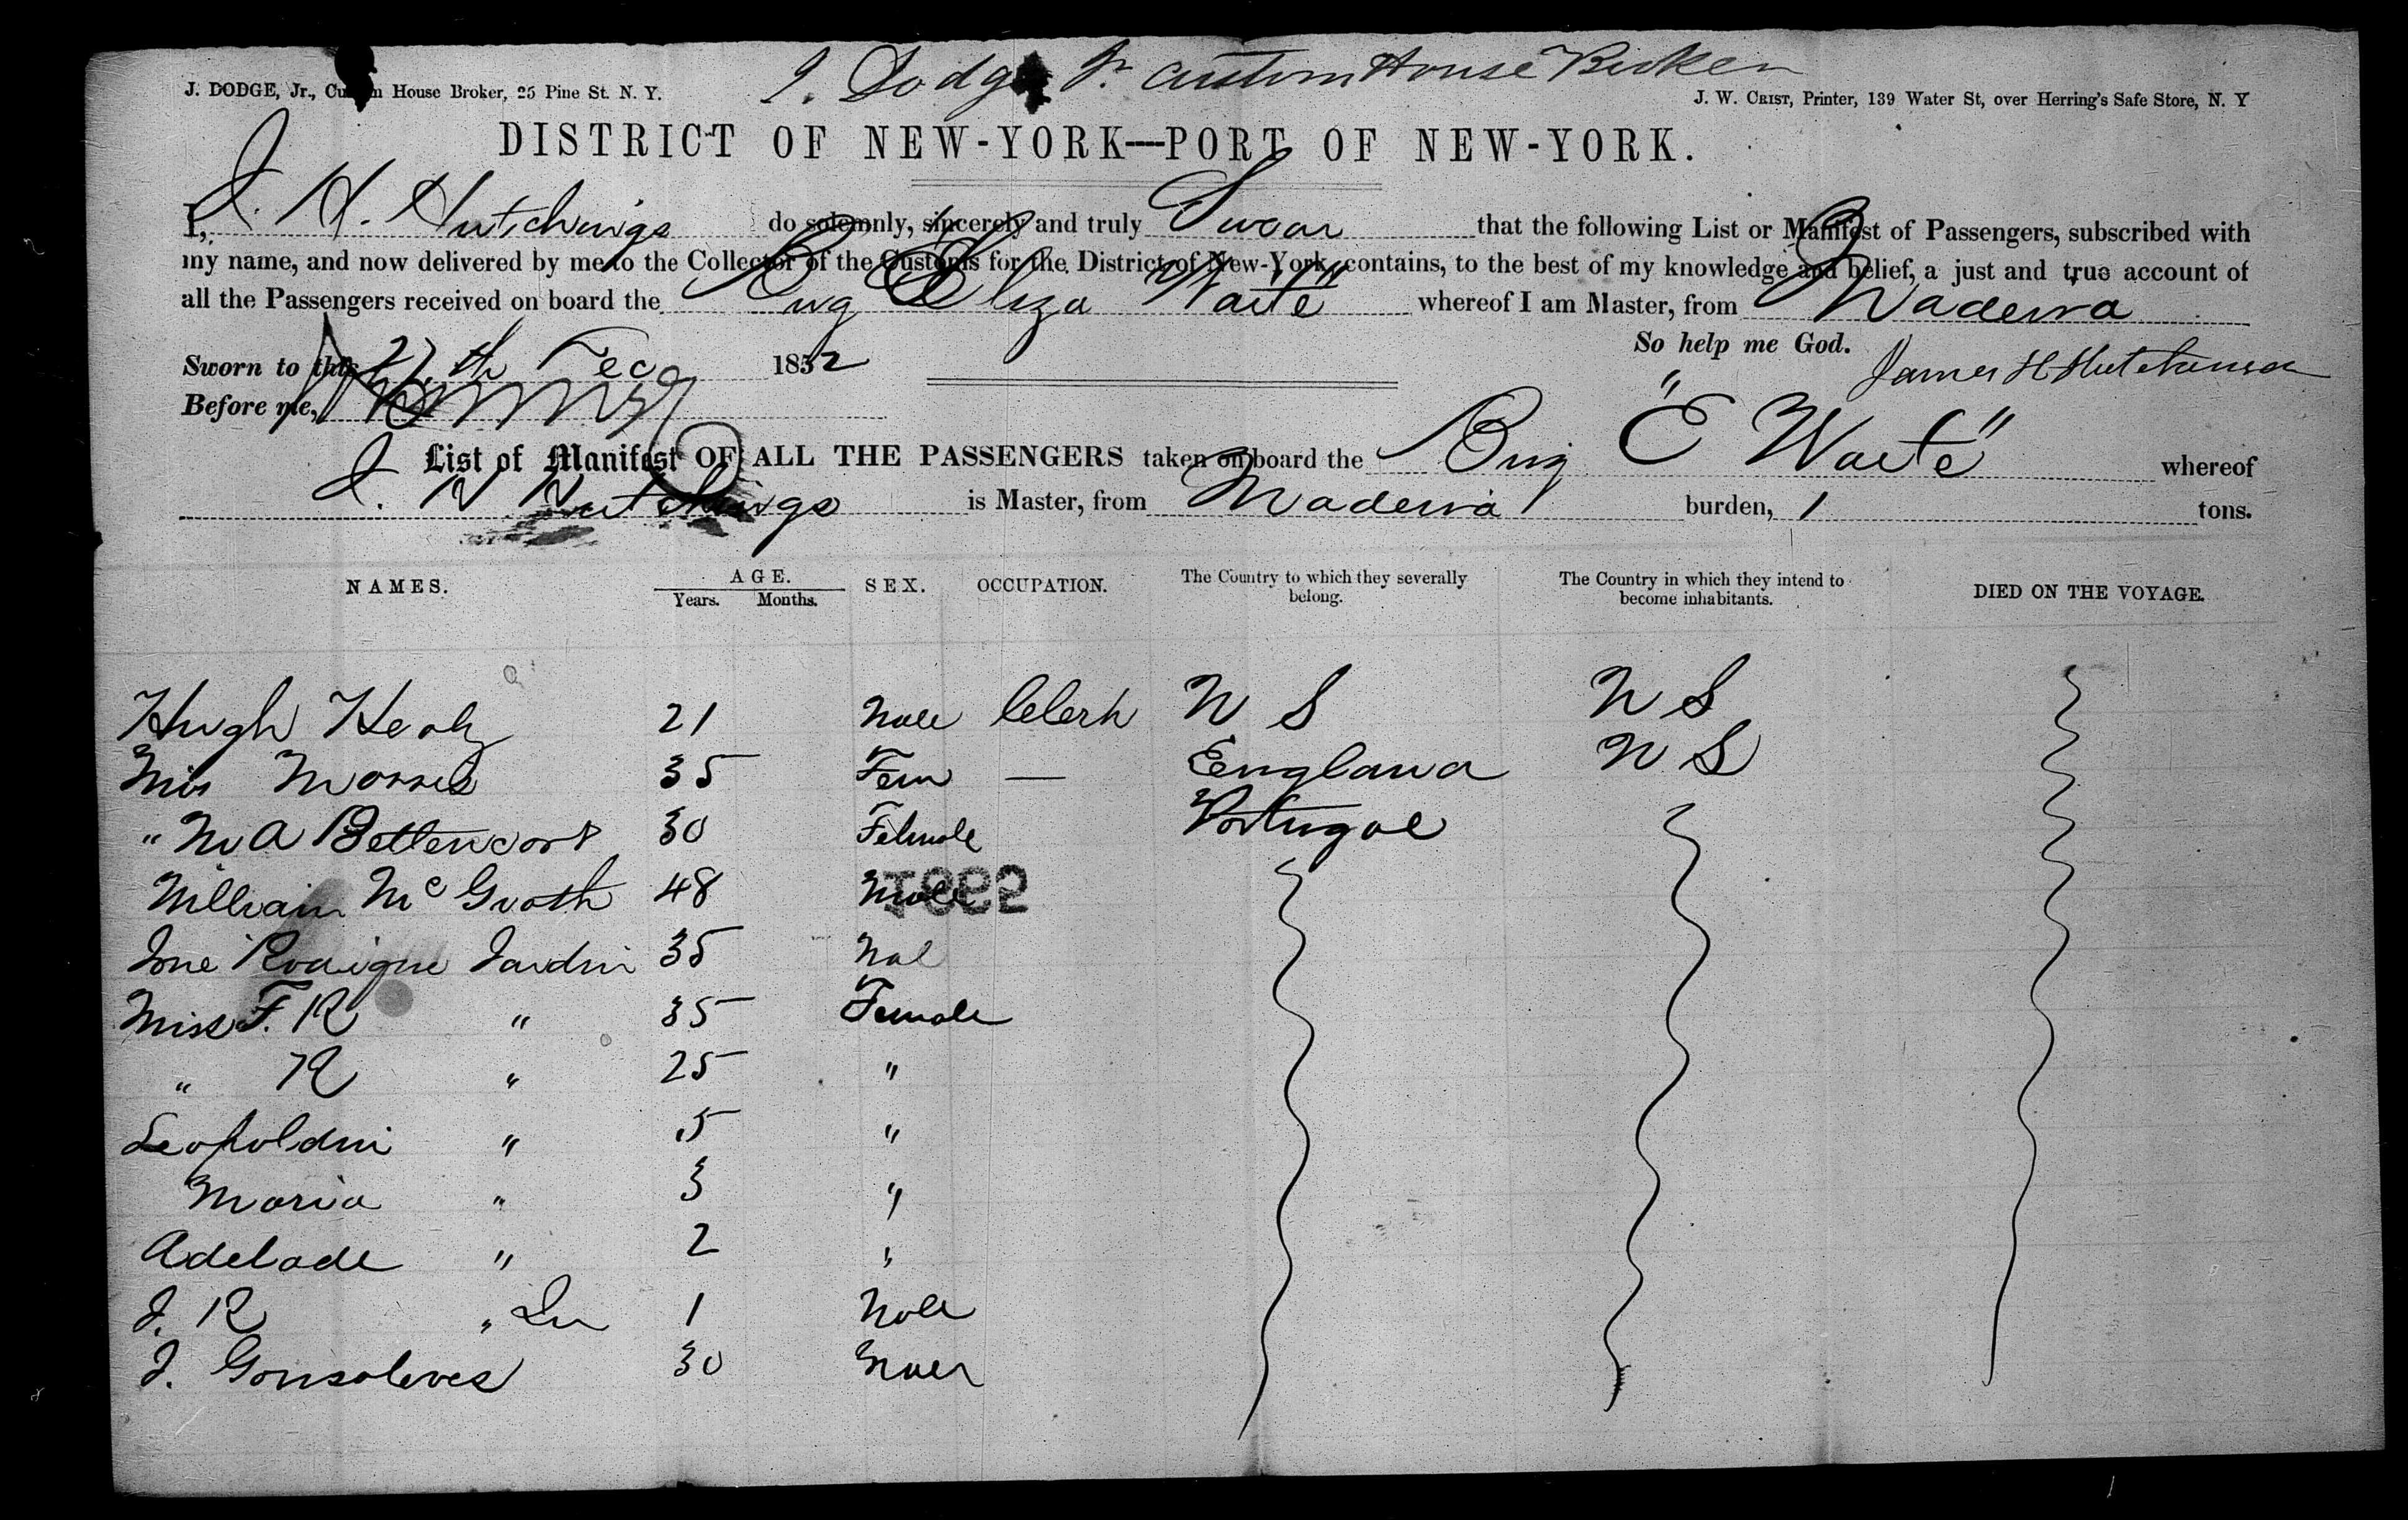 J. Dodge Jr Custom House Broker
J. DODGE, Jr., Custom House Broker, 25 Pine St. N. Y.
J. W. CRIST, Printer, 139 Water St, over Herring's Safe Store, N. Y
DISTRICT OF NEW-YORK—PORT OF NEW-YORK.
I, J. H. Hutchings do solemnly, sincerely and truly Swear that the following List or Manifest of Passengers, subscribed with
my name, and now delivered by me to the Collector of the Customs for the District of New-York, contains, to the best of my knowledge and belief, a just and true account of
all the Passengers received on board the Brig "Eliza Waite" whereof I am Master, from Madeira
So help me God.
Sworn to this 27th Feb 1852
James H Hutchinson
Before me,
List of Manifest OF ALL THE PASSENGERS taken on board the Brig "E Waite" whereof
J. H Hutchings is Master, from Madeira burden, 1 tons.
NAMES. AGE. SEX. OCCUPATION. The Country to which they severally belong. The Country in which they intend to become inhabitants. DIED ON THE VOYAGE.
Years. Months.
Hugh Healy 21 Male Clerk U S U S
Mis Morris 35 Fem — England U S
" M A Bettencort 30 Female Portugal
William Mc Grath 48 Male
1882
Jose Rodrigue Jardin 35 Mal
Miss F. R " 35 Female
" R " 25 "
Leopoldin " 5 "
Maria " 3 "
Adelade " 2 "
J. R " Jn 1 Male
J. Gonsalves 30 Male